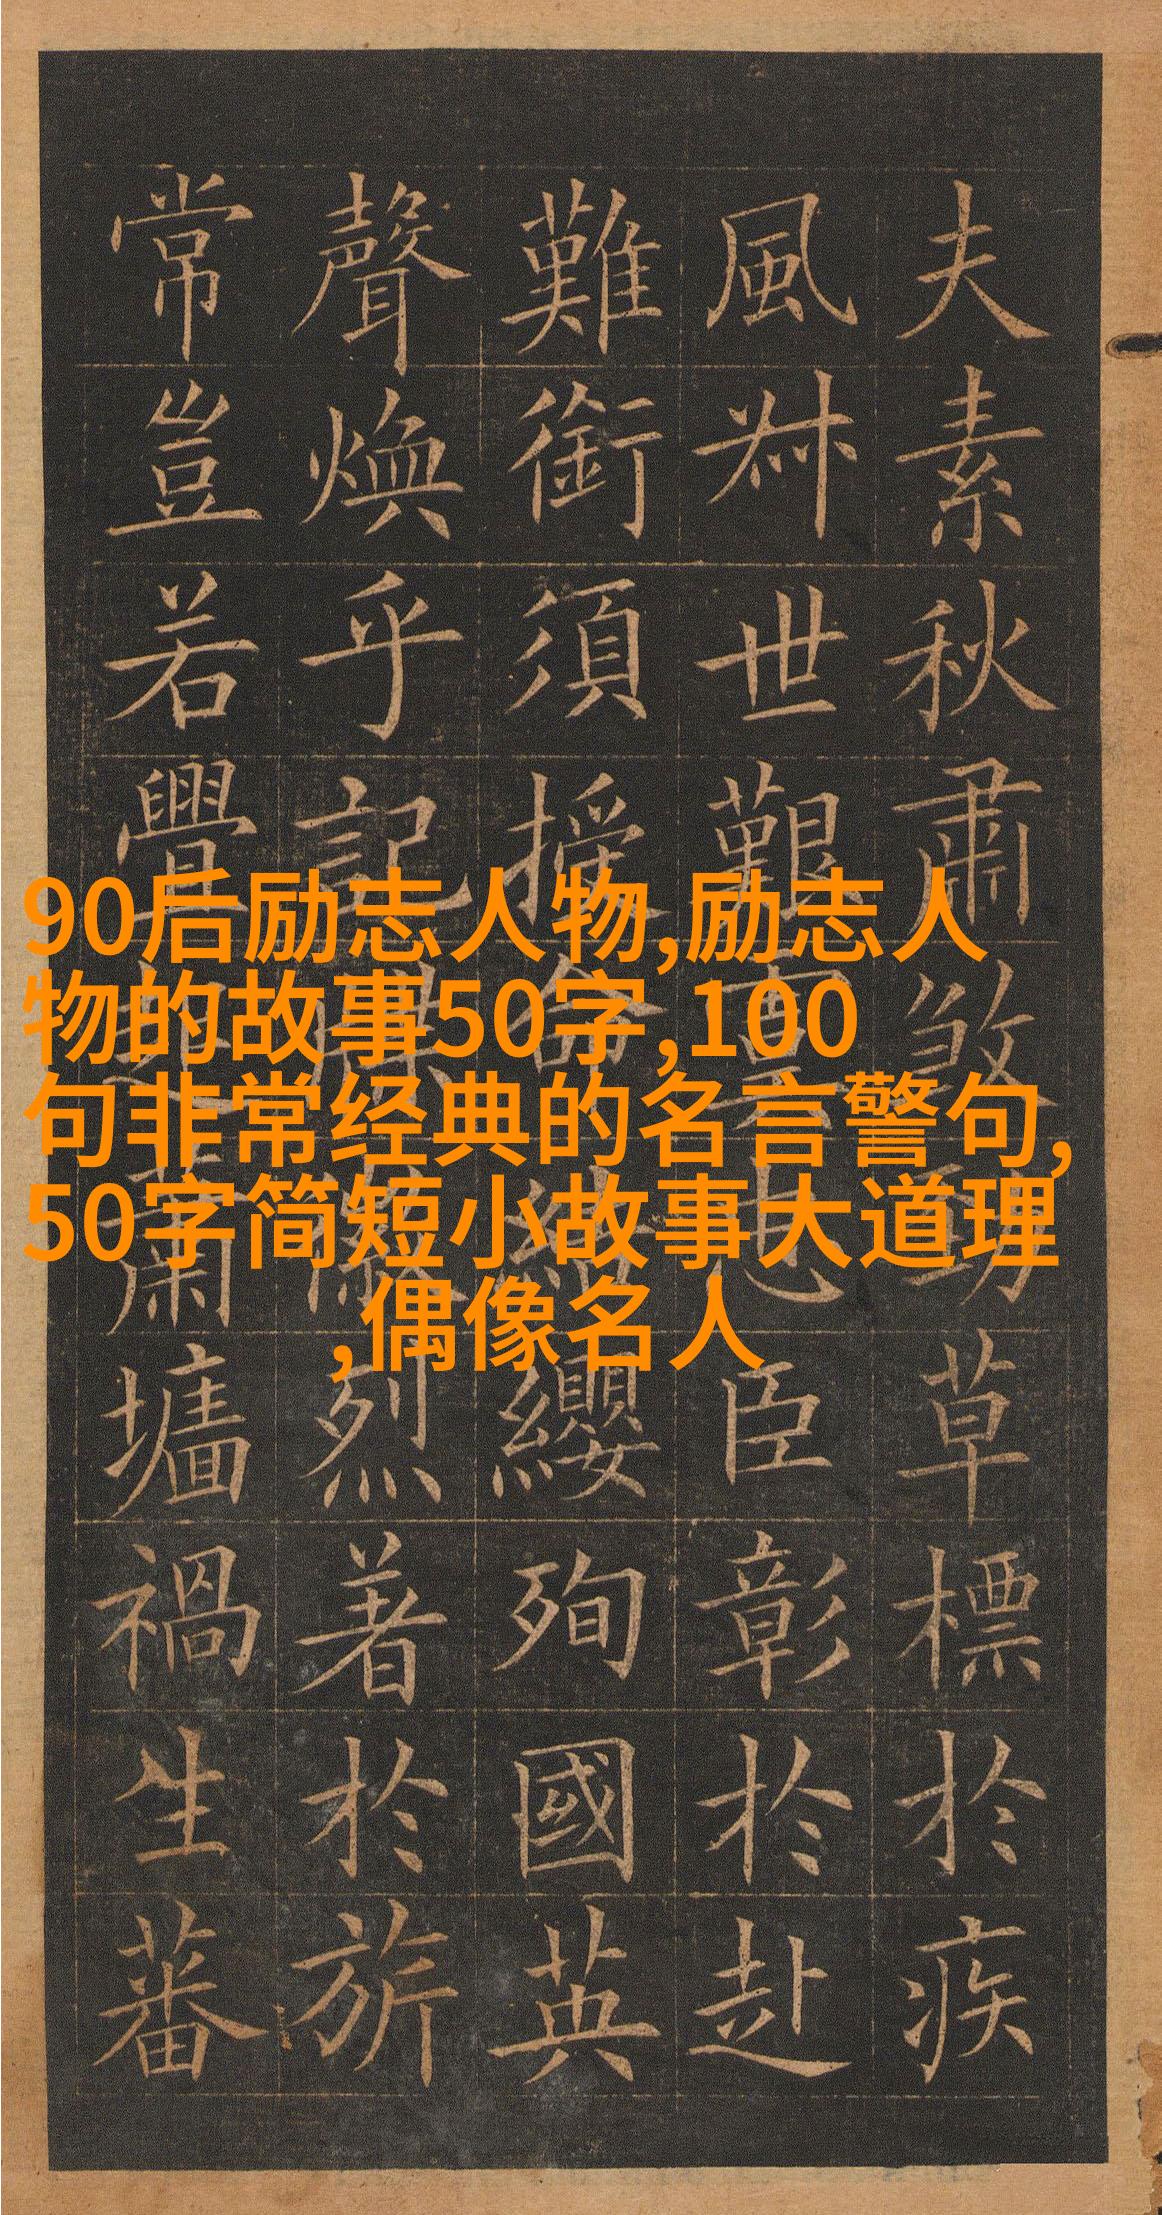 90后励志人物,励志人
物的故事50字,100
句非常经典的名言警句,
50字简短小故事大道理
,偶像名人
夫素秋肅煞勁草標於疾
風叔世艱忠臣彰於赴
難銜須授命纓殉國英
聲煥乎記烈著於旂
常豈若釁蕭墻禍生蕃